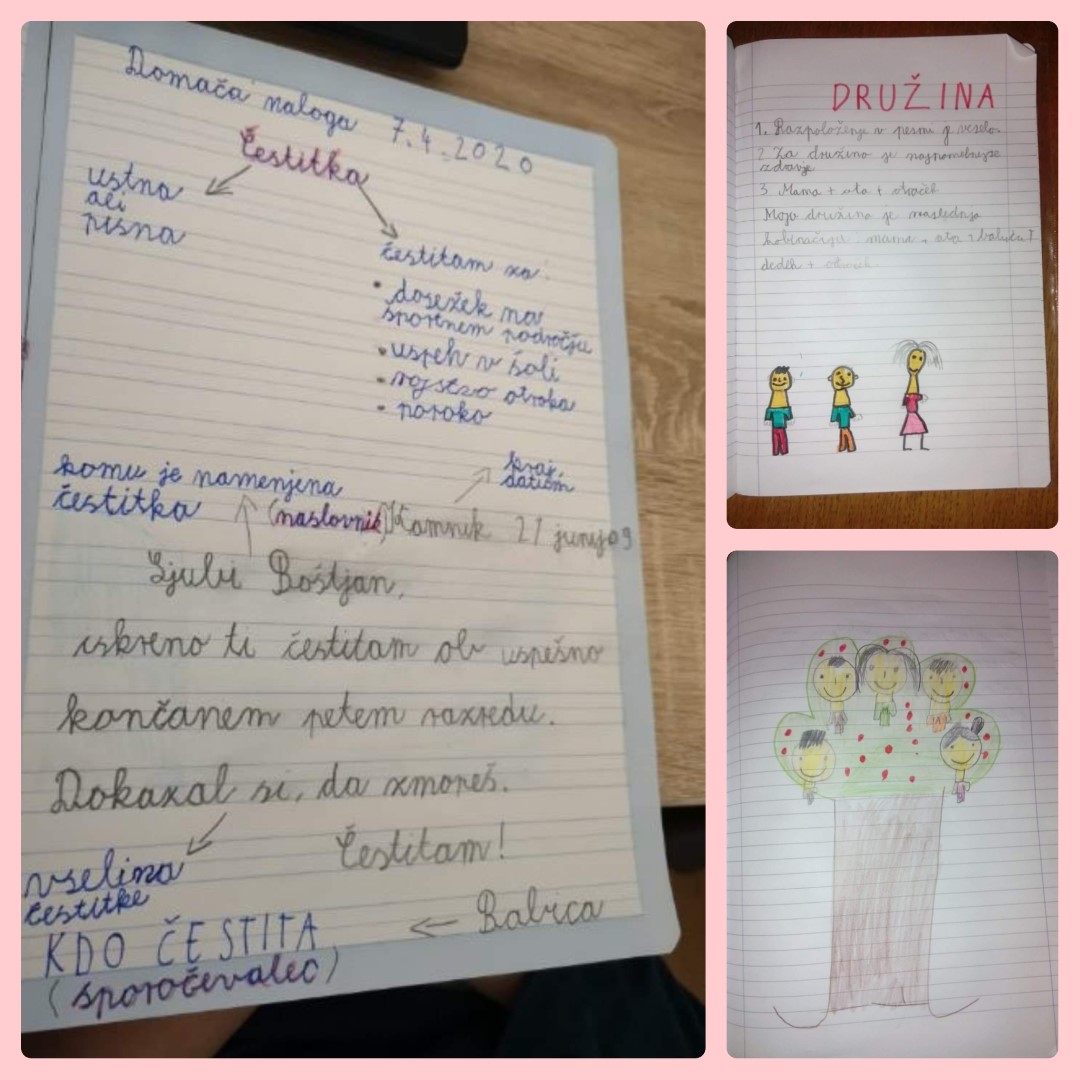 Domača naloga 7.4.2020
Čestitka
ustna
ali
pisna
čestitam za:
• dosežek na
športnem področju
• uspeh v šoli
• rojstvo otroka
• poroko
komu je namenjena
čestitka
(naslovnik)
kraj,
datum
Kamnik 21 junij
Ljubi Boštjan,
iskreno ti čestitam ob uspešno
končanem petem razredu.
Dokazal si, da zmoreš.
Čestitam!
vsebina
čestitke
Babica
KDO ČESTITA
(sporočevalec)
DRUŽINA
1. Razpoloženje v pesmi je veselo.
2 Za družino je najpomembnejše
zdravje
3. Mama + ata + otroček
Moja družina je naslednja
mama + ata + babica +
dedek + otroček.